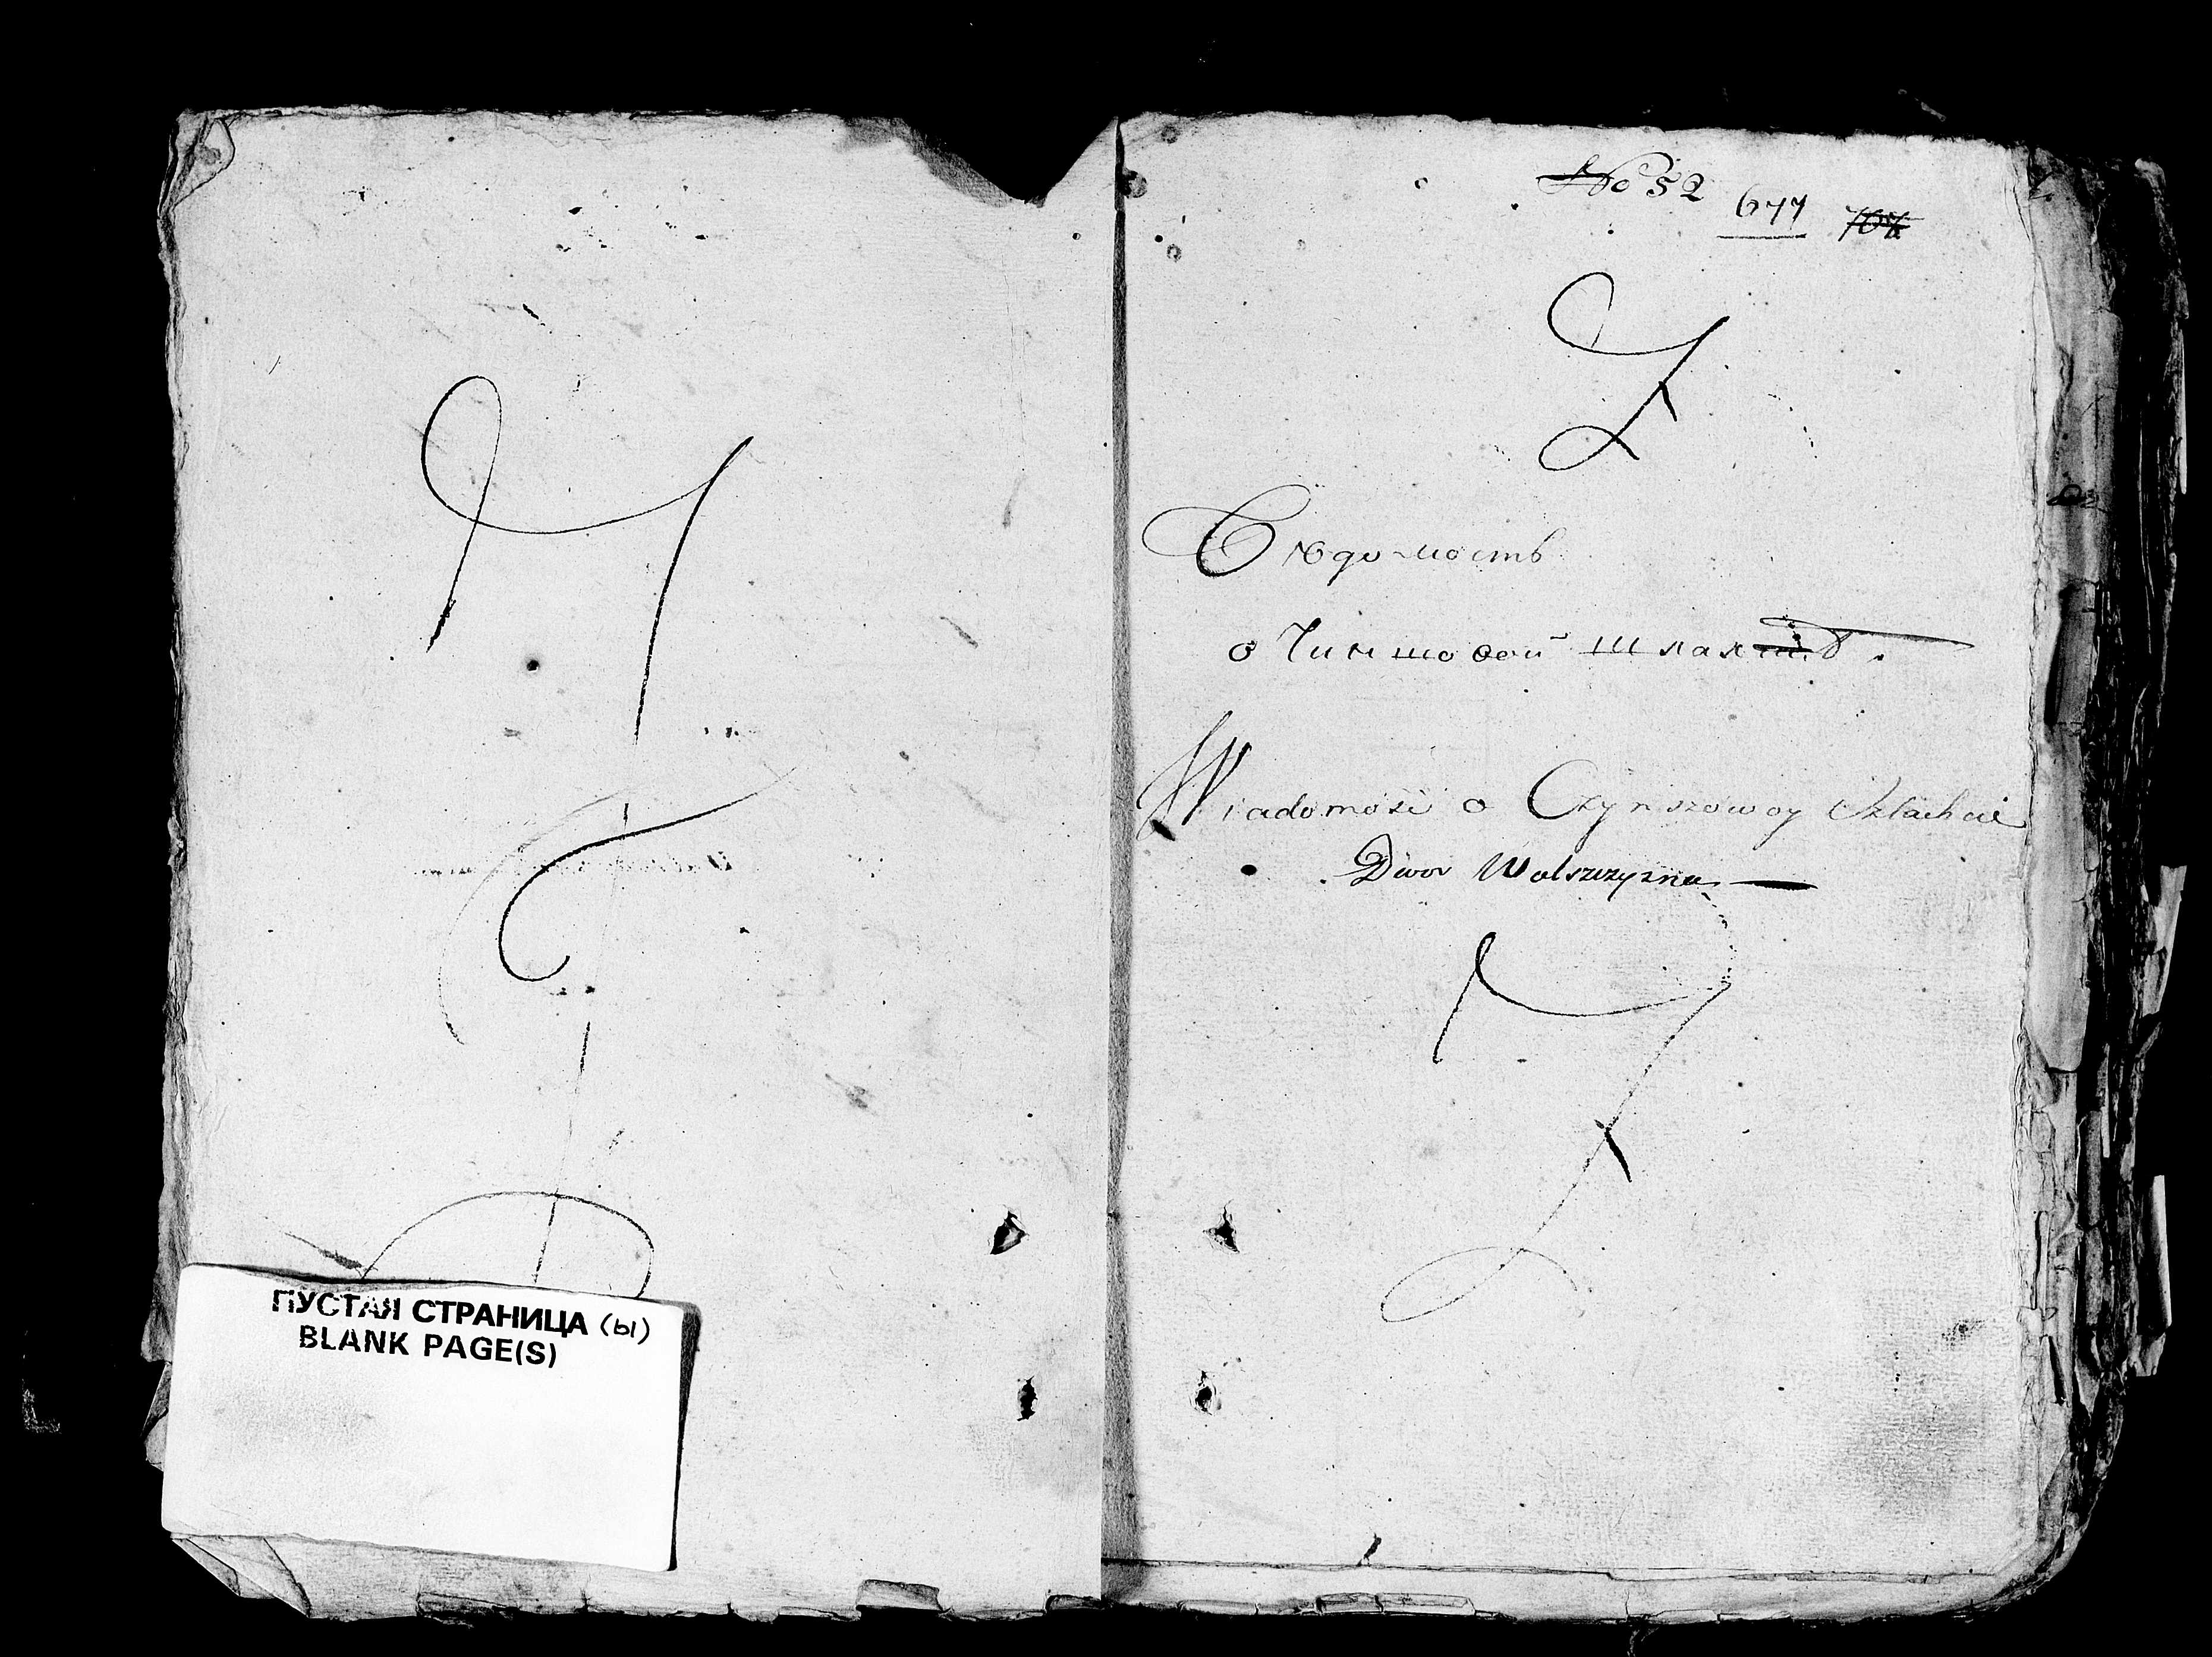 ПУСТАЯ СТРАНИЦА (ы)
BLANK PAGE(S)
No 52 677 707
Вѣдомость
о Чиншовой шляхтѣ.
Wiadomość o Czynszowoy Szlachcie
Dwor Wolszczyzna